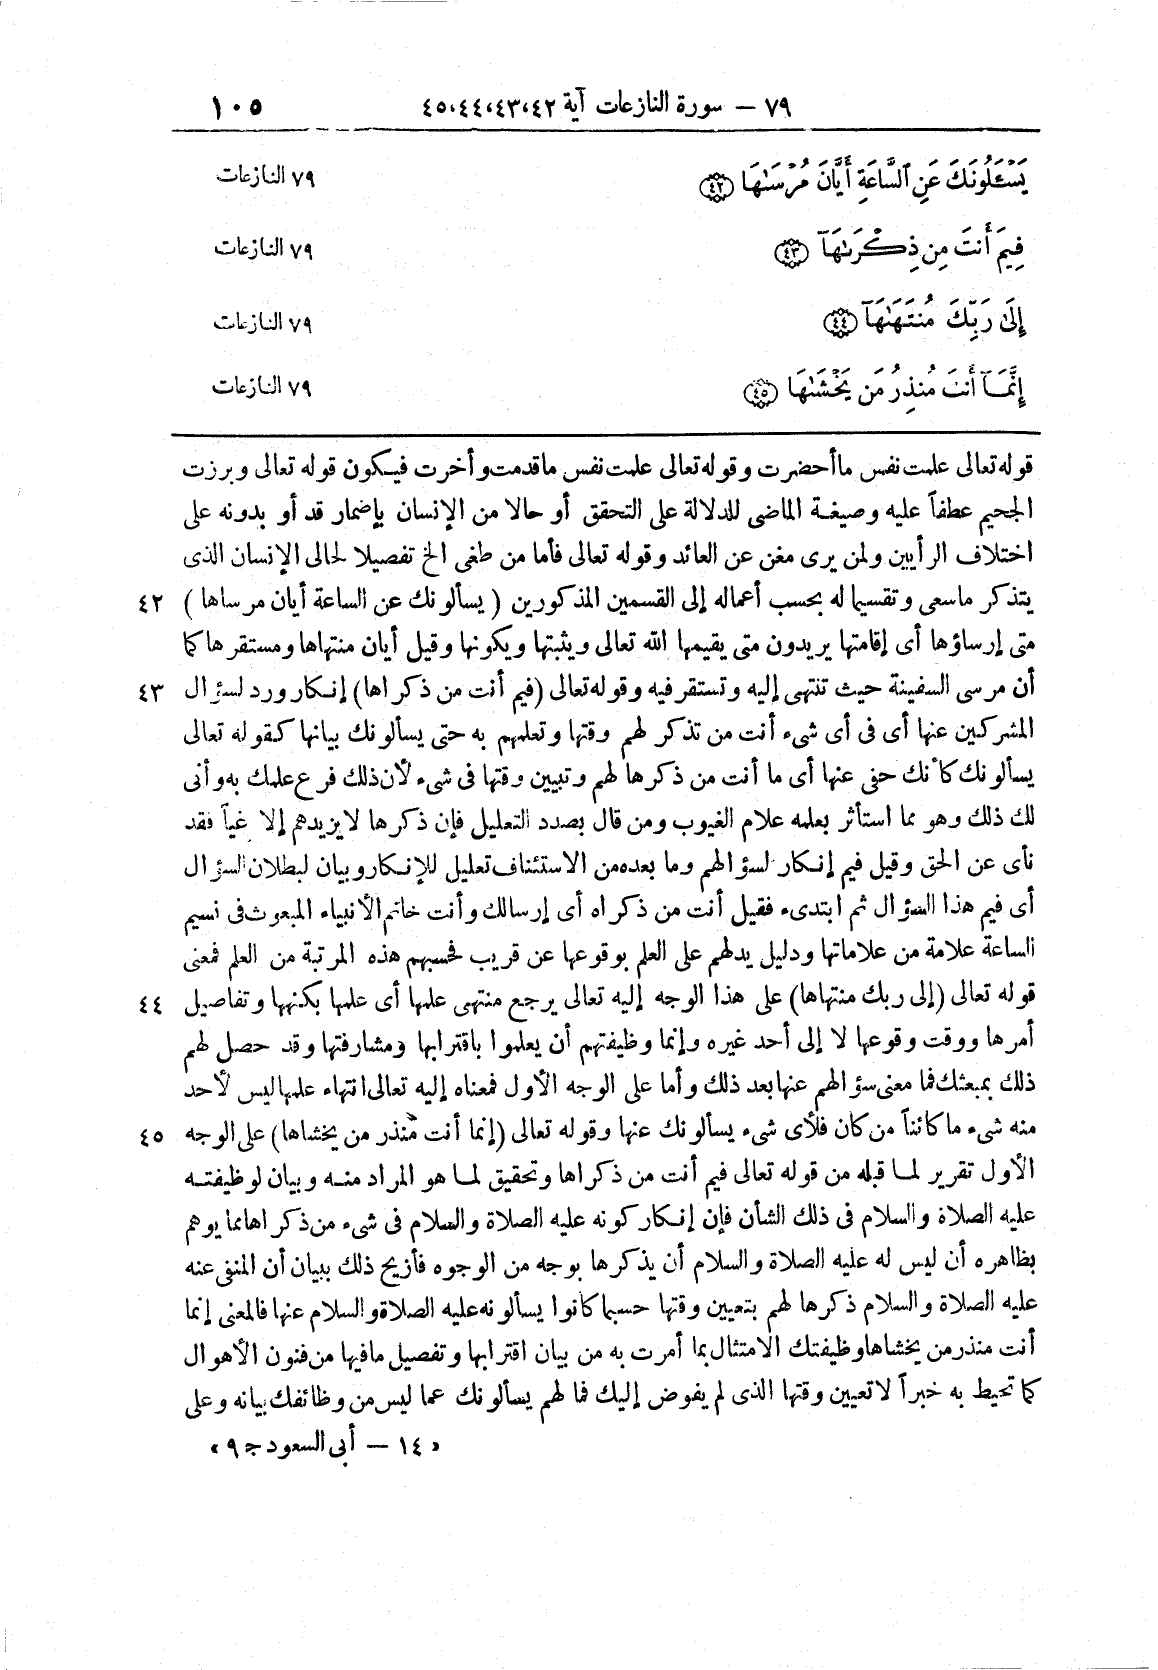 ٧٩ – سورة النازعات آية ٤٢،٤٣،٤٤،٤٥ ١٠٥
يَسْـَٔلُونَكَ عَنِ ٱلسَّاعَةِ أَيَّانَ مُرْسَىٰهَا ﴿٤٢﴾ ٧٩ النازعات
فِيمَ أَنتَ مِن ذِكْرَىٰهَآ ﴿٤٣﴾ ٧٩ النازعات
إِلَىٰ رَبِّكَ مُنتَهَىٰهَآ ﴿٤٤﴾ ٧٩ النازعات
إِنَّمَآ أَنتَ مُنذِرُ مَن يَخْشَىٰهَا ﴿٤٥﴾ ٧٩ النازعات
قوله تعالى علمت نفس ما أحضرت وقوله تعالى علمت نفس ما قدمت وأخرت فيكون قوله تعالى وبرزت
الجحيم عطفاً عليه وصيغة الماضى للدلالة على التحقق أو حالا من الإنسان بإضمار قد أو بدونه على
اختلاف الرأيين ولمن يرى مغن عن العائد وقوله تعالى فأما من طغى الخ تفصيلا لحالى الإنسان الذى
يتذكر ما سعى وتقسيما له بحسب أعماله إلى القسمين المذكورين (يسألونك عن الساعة أيان مرساها) ٤٢
متى إرساؤها أى إقامتها يريدون متى يقيمها الله تعالى ويثبتها ويكونها وقيل أيان منتهاها ومستقرها كما
أن مرسى السفينة حيث تنتهى إليه وتستقر فيه وقوله تعالى (فيم أنت من ذكراها) إنكار ورد لسؤال ٤٣
المشركين عنها أى فى أى شىء أنت من تذكر لهم وقتها وتعلمهم به حتى يسألونك بيانها كقوله تعالى
يسألونك كأنك حفى عنها أى ما أنت من ذكرها لهم وتبيين وقتها فى شىء لأن ذلك فرع علمك به وأنى
لك ذلك وهو مما استأثر بعلمه علام الغيوب ومن قال بصدد التعليل فإن ذكرها لا يزيدهم إلا غياً فقد
نأى عن الحق وقيل فيم إنكار لسؤالهم وما بعده من الاستئناف تعليل للإنكار وبيان لبطلان السؤال
أى فيم هذا السؤال ثم ابتدىء فقيل أنت من ذكراه أى إرسالك وأنت خاتم الأنبياء المبعوث فى نسيم
الساعة علامة من علاماتها ودليل يدلهم على العلم بوقوعها عن قريب فحسبهم هذه المرتبة من العلم فمعنى
قوله تعالى (إلى ربك منتهاها) على هذا الوجه إليه تعالى يرجع منتهى علمها أى علمها بكنهها وتفاصيل ٤٤
أمرها ووقت وقوعها لا إلى أحد غيره وإنما وظيفتهم أن يعلموا باقترابها ومشارفتها وقد حصل لهم
ذلك بمبعثك فما معنى سؤالهم عنها بعد ذلك وأما على الوجه الأول فمعناه إليه تعالى انتهاء علمها ليس لأحد
منه شىء ما كائناً من كان فلأى شىء يسألونك عنها وقوله تعالى (إنما أنت منذر من يخشاها) على الوجه ٤٥
الأول تقرير لما قبله من قوله تعالى فيم أنت من ذكراها وتحقيق لما هو المراد منه وبيان لوظيفته
عليه الصلاة والسلام فى ذلك الشأن فإن إنكار كونه عليه الصلاة والسلام فى شىء من ذكراها مما يوهم
بظاهره أن ليس له عليه الصلاة والسلام أن يذكرها بوجه من الوجوه فأزيح ذلك ببيان أن المنفى عنه
عليه الصلاة والسلام ذكرها لهم بتعيين وقتها حسبما كانوا يسألونه عليه الصلاة والسلام عنها فالمعنى إنما
أنت منذر من يخشاها وظيفتك الامتثال بما أمرت به من بيان اقترابها وتفصيل ما فيها من فنون الأهوال
كما تحيط به خبراً لا تعيين وقتها الذى لم يفوض إليك فما لهم يسألونك عما ليس من وظائفك بيانه وعلى
«١٤ – أبى السعود ج ٩»